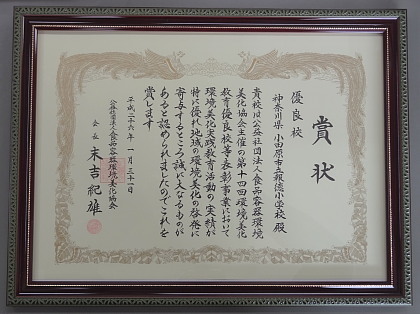 賞状
優良校
神奈川県 小田原市立報徳小学校 殿
貴校は公益社団法人食品容器環境
美化協会主催の第十四回環境美化
教育優良校等表彰事業において
環境美化実践教育活動の実績が
特に優れ地域の環境美化の啓発に
寄与するところ誠に大なるものが
あると認められましたのでこれを
賞します
平成二十六年一月三十一日
公益社団法人食品容器環境美化協会
会長 末吉紀雄